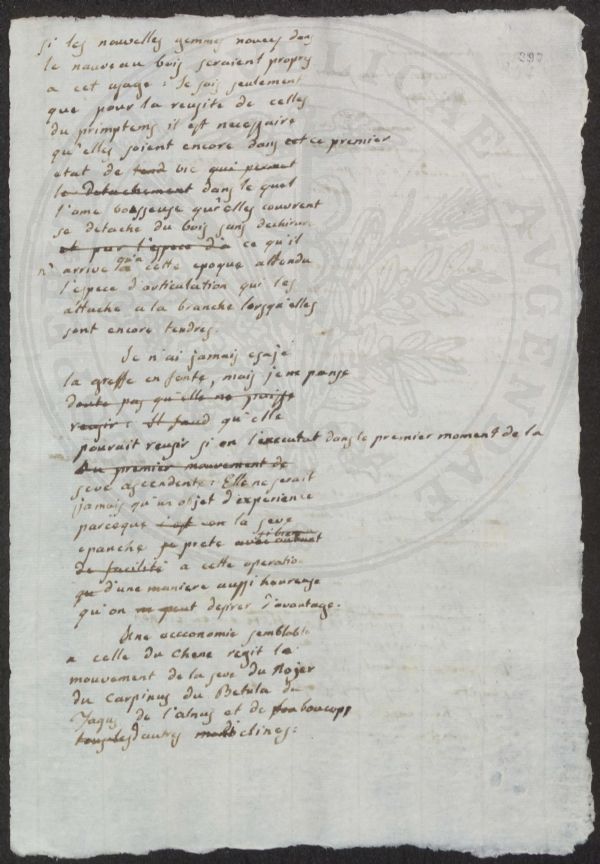 397
si les nouvelles gemmes nouées dans
le nouveau bois seraient propres
a cet usage : Je sais seulement
que pour la reusite de celles
du primptems il est necessaire
qu'elles soient encore dans cet ce premier
etat de tend bie qui permet
le detachement dans le quel
l'ame bosseuse qu'elles couvrent
se detache du bois sans dechirure
et par l'espece d'a ce qu'il
n' arrive qu'a cette epoque attendu
l'espece d'articulation qui les
attache a la branche lorsqu'elles
sont encore tendres.
Je n'ai jamais esaje
la greffe en fente, mais je ne panse
doute pas qu'elle ne puisse
reusir : Il faud qu'elle
pourait reusir si on l'executat dans le premier moment de la
Du premier mouvement de
seve ascendente : Elle ne serait
jamais qu'un objet d'experience
parceque c'est on la seve
epanche se prete si bien avec autant
de facilité a cette operatio
qu d'une maniere aussi heureuse
qu'on ne peut desirer d'avantage.
Une oeconomie semblable
a celle du Chene regit le
mouvement de la seve du Nojer
du Carpinus du Betula du
Fagus de l'alnus et de beaucoups
tous les d'autres diclines.